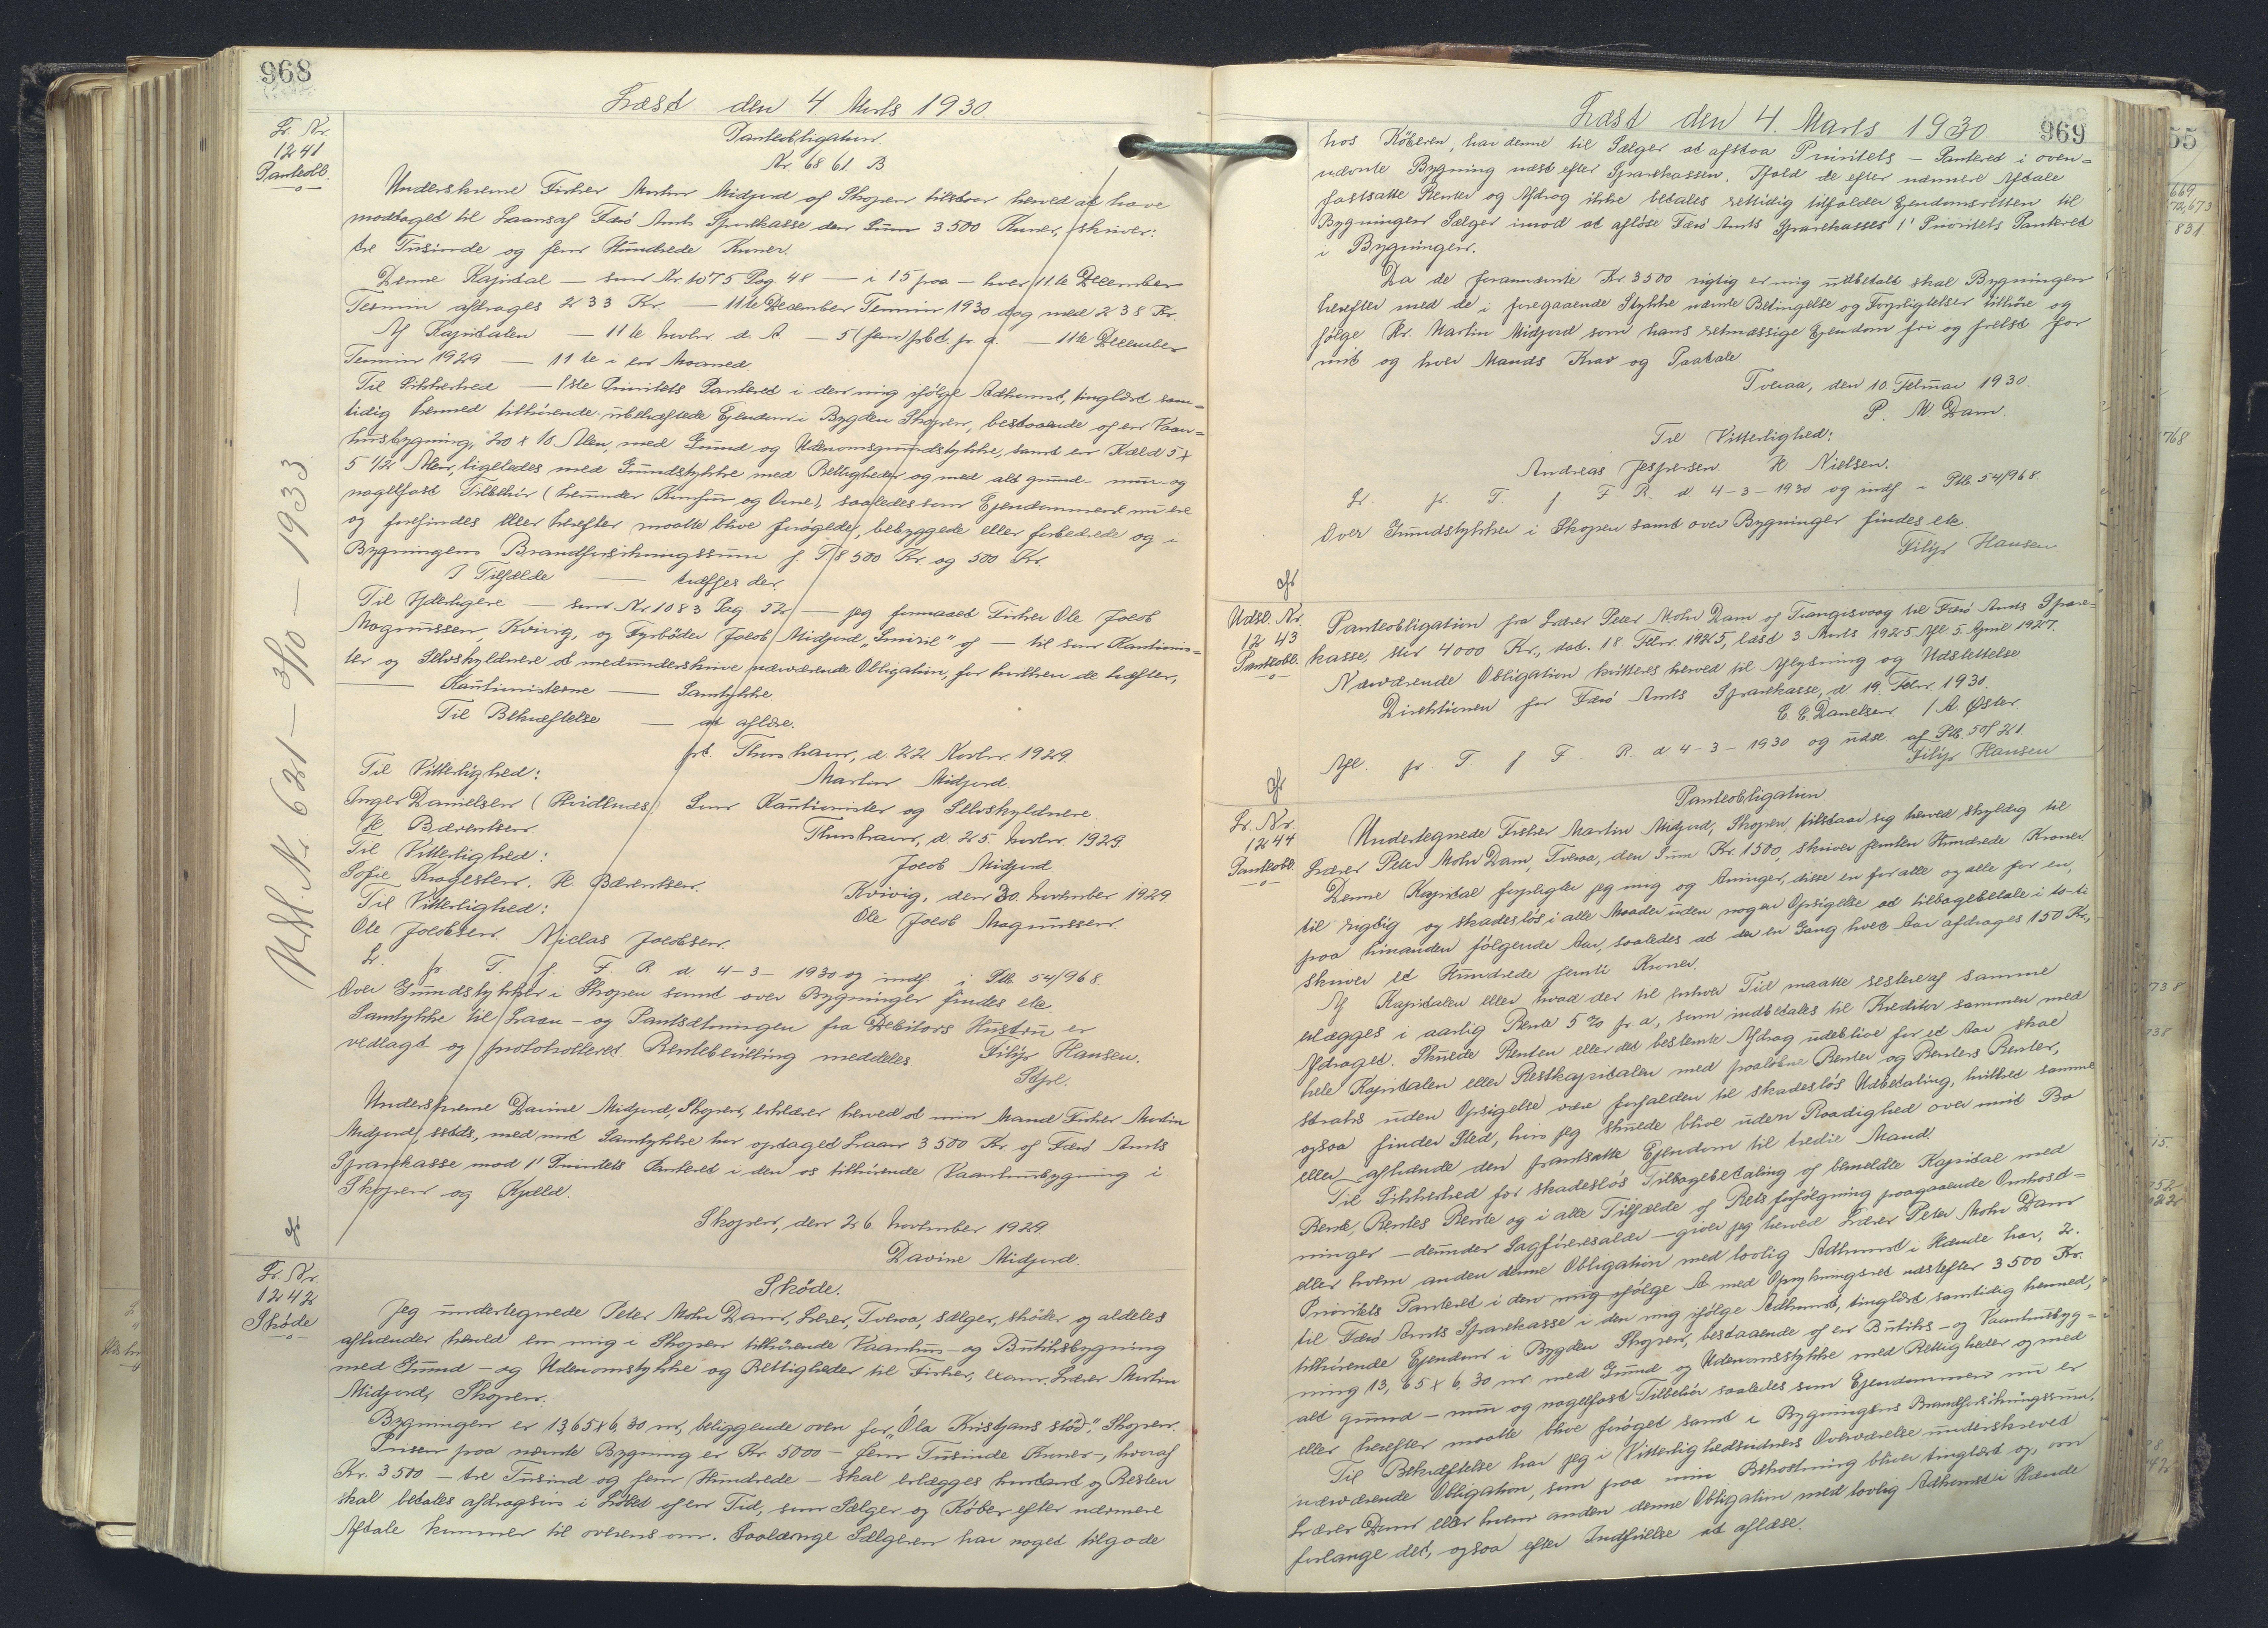 968
Læst den 4 Marts 1930.
Lr. Nr.
1241
Panteobl.
Panteobligation
Nr. 6861. B.
Underskrevne Fisker Martin Midjord af Skopen tilstaar herved at have
modtaget til Laans af Færø Amts Sparekasse den Sum 3500 Kroner, skriver:
tre Tusinde og fem Hundrede Kroner.
Denne Kapital — som Nr. 1075 Pag. 48 — i 15 paa — hver 11te December
Termin afdrages 233 Kr. — 11te December Termin 1930 dog med 238 Kr.
Af Kapitalen — 11te Novbr. d. A. — 5 (fem) pct. pr. a. — 11te December
Termin 1929 — 11te i en Maaned
Til Sikkerhed — 1ste Prioritets Panteret i den mig ifølge Adkomst, tinglæst sam-
tidig hermed tilhørende ubehæftede Ejendom i Bygden Skopen, bestaaende af en Vaan-
husbygning, 20 x 10 Alen, med Grund og Udenomsgrundstykke, samt en Kæld 5 x
5 1/2 Alen, ligeledes med Grundstykke med Rettigheder og med alt grund- mur- og
nagelfast Tilbehør (herunder Komfur og Ovne), saaledes som Ejendommene nu ere
og forefindes eller herefter maatte blive forøgede, bebyggede eller forbedrede og i
Bygningens Brandforsikringssum f. T. 8500 Kr. og 500 Kr.
I Tilfælde — træffes der.
Til Yderligere — som Nr. 1083 Pag 52 — jeg formaaet Fisker Ole Jacob
Magnussen, Kvivig, og Fyrbøder Jacob Midjord "Smiril" af — til som Kautionis-
ter og Selvskyldnere at medunderskrive nærværende Obligation, for hvilken de hæfter,
— Kautionisterne — Samtykke.
Til Bekræftelse — at aflæse.
pt. Thorshavn, d. 22 Novbr. 1929.
Til Vitterlighed:
Martin Midjord.
Inger Danielsen (Hvidlnæs)
Som Kautionister og Selvskyldnere.
H. Bærentsen.
Thorshavn, d. 25. Novbr. 1929
Til Vitterlighed:
Jacob Midjord.
Sofie Kragesteen. H. Bærentsen.
Kvivig, den 30. November 1929
Til Vitterlighed:
Ole Jacob Magnussen.
Ole Jacobsen. Niclas Jacobsen.
Lr. pr. T. f. F. R. d. 4-3-1930 og indf. i Ptb. 54/968.
Over Grundstykker i Skopen samt over Bygninger findes etc.
Samtykke til Laan- og Pantsætningen fra Debitors Hustru er
vedlagt og protokolleret. Rentebevilling meddeles.
Filip Hansen.
Stfr.
Udsl. Nr. 621 — 3/10 — 1933
Underskrevne Davine Midjord, Skopen, erklærer herved at min Mand Fisker Martin
Midjord, sstds, med mit Samtykke har optaget Laan 3500 Kr. af Færø Amts
Sparekasse mod 1' Prioritets Panteret i den os tilhørende Vaanhusbygning i
Skopen og Kjæld.
Skopen, den 26. November 1929.
Davine Midjord.
Lr. Nr.
1242
Skøde
Skøde.
Jeg undertegnede Peter Mohr Dam, Lærer, Tveraa, sælger, skøder og aldeles
afhænder herved en mig i Skopen tilhørende Vaanhus- og Butiksbygning
med Grund- og Udenomstykke og Rettigheder til Fisker, Lærer Martin
Midjord, Skopen.
Bygningen er 13,65 x 6,30 m, beliggende oven for "Óla Kristjans stød", Skopen.
Prisen paa nævnte Bygning er Kr. 5000 — fem Tusinde Kroner —, hvoraf
Kr. 3500 — tre Tusind og fem Hundrede — skal erlægges kontant og Resten
skal betales afdragsvis i Løbet af en Tid, som Sælger og Køber efter nærmere
Aftale kommer til overens om. Saalænge Sælgeren har noget tilgode
Læst den 4. Marts 1930
969
hos Køberen, har denne til Sælger at afstaa Prioritets-Panteret i oven-
nævnte Bygning næst efter Sparekassen. Ifald de efter nærmere Aftale
fastsatte Renter og Afdrag ikke betales rettidig tilfalder Ejendomsretten til
Bygningen Sælger imod at afløse Færø Amts Sparekasses 1' Prioritets Panteret
i Bygningen.
Da de forannævnte Kr. 3500 rigtig er mig udbetalt skal Bygningen
herefter med de i foregaaende Stykke nævnte Betingelse og Forpligtelser tilhøre og
følge Hr. Martin Midjord som hans retmæssige Ejendom fri og frelst for
mit og hver Mands Krav og Paatale
Tveraa, den 10. Februar 1930.
P. M. Dam.
Til Vitterlighed:
Andreas Jespersen. H. Nielsen.
Lr. pr. T. f. F. R. d. 4-3-1930 og indf. i Ptb. 54/968.
Over Grundstykker i Skopen samt over Bygninger findes etc.
Filip Hansen
Udsl. Nr.
1243
Panteobl.
Panteobligation fra Lærer Peter Mohr Dam af Trangisvaag til Færø Amts Spare-
kasse, stor 4000 Kr., dat. 18. Febr. 1925, læst 3. Marts 1925. Afl. 5. April 1927.
Nærværende Obligation kvitteres herved til Aflysning og Udslettelse
Direktionen for Færø Amts Sparekasse, d. 19. Febr. 1930.
C. C. Danielsen / A. Øster.
Afl. pr. T. f. F. R. d 4-3-1930 og udsl. af Ptb. 50/21.
Filip Hansen
Lr. Nr.
1244
Panteobl.
Panteobligation.
Undertegnede Fisker Martin Midjord, Skopen, tilstaar sig herved skyldig til
Lærer Peter Mohr Dam, Tveraa, den Sum Kr. 1500, skriver femten Hundrede Kroner.
Denne Kapital forpligter jeg mig og Arvinger, disse en for alle og alle for en,
til rigtig og skadesløs i alle Maader uden nogen Opsigelse at tilbagebetale i ti-ti
paa hinanden følgende Aar, saaledes at der en Gang hvert Aar afdrages 150 Kr.,
skriver et Hundrede femti Kroner.
Af Kapitalen eller hvad der til enhver Tid maatte restere af samme
erlægges i aarlig Rente 5 % pr a, som indbetales til Kreditor sammen med
Afdraget. Skulde Renten eller det bestemte Afdrag udeblive for et Aar skal
hele Kapitalen eller Restkapitalen med paaløbne Renter og Renters Renter,
straks uden Opsigelse være forfalden til skadesløs Udbetaling, hvilket samme
ogsaa finder Sted, hvis jeg skulde blive uden Raadighed over mit Bo
eller afhænde den pantsatte Ejendom til tredie Mand.
Til Sikkerhed for skadesløs Tilbagebetaling af bemeldte Kapital med
Rente, Rentes Rente og i alle Tilfælde af Rets forfølgning paagaaende Omkost-
ninger — derunder Sagførersalær — giver jeg herved Lærer Peter Mohr Dam
eller hvem anden denne Obligation med lovlig Adkomst i Hænde har, 2.
Prioritets Panteret i den mig ifølge A med Oprykningsret næstefter 3500 Kr.
til Færø Amts Sparekasse i den mig ifølge Adkomst, tinglæst samtidig hermed,
tilhørende Ejendom i Bygden Skopen, bestaaende af en Butiks- og Vaanhusbyg-
ning 13,65 x 6,30 m. med Grund og Udenomsstykke med Rettigheder og med
alt grund- mur og nagelfast Tilbehør saaledes som Ejendommen nu er
eller herefter maatte blive forøget samt i Bygningens Brandforsikringssum.
Til Bekræftelse har jeg i Vitterlighedsvidners Overværelse underskrevet
nærværende Obligation, som paa min Bekostning bliver tinglæst og, om
Lærer Dam eller hvem anden denne Obligation med lovlig Adkomst i Hænde
forlange det, ogsaa efter Indførelse at aflæse.